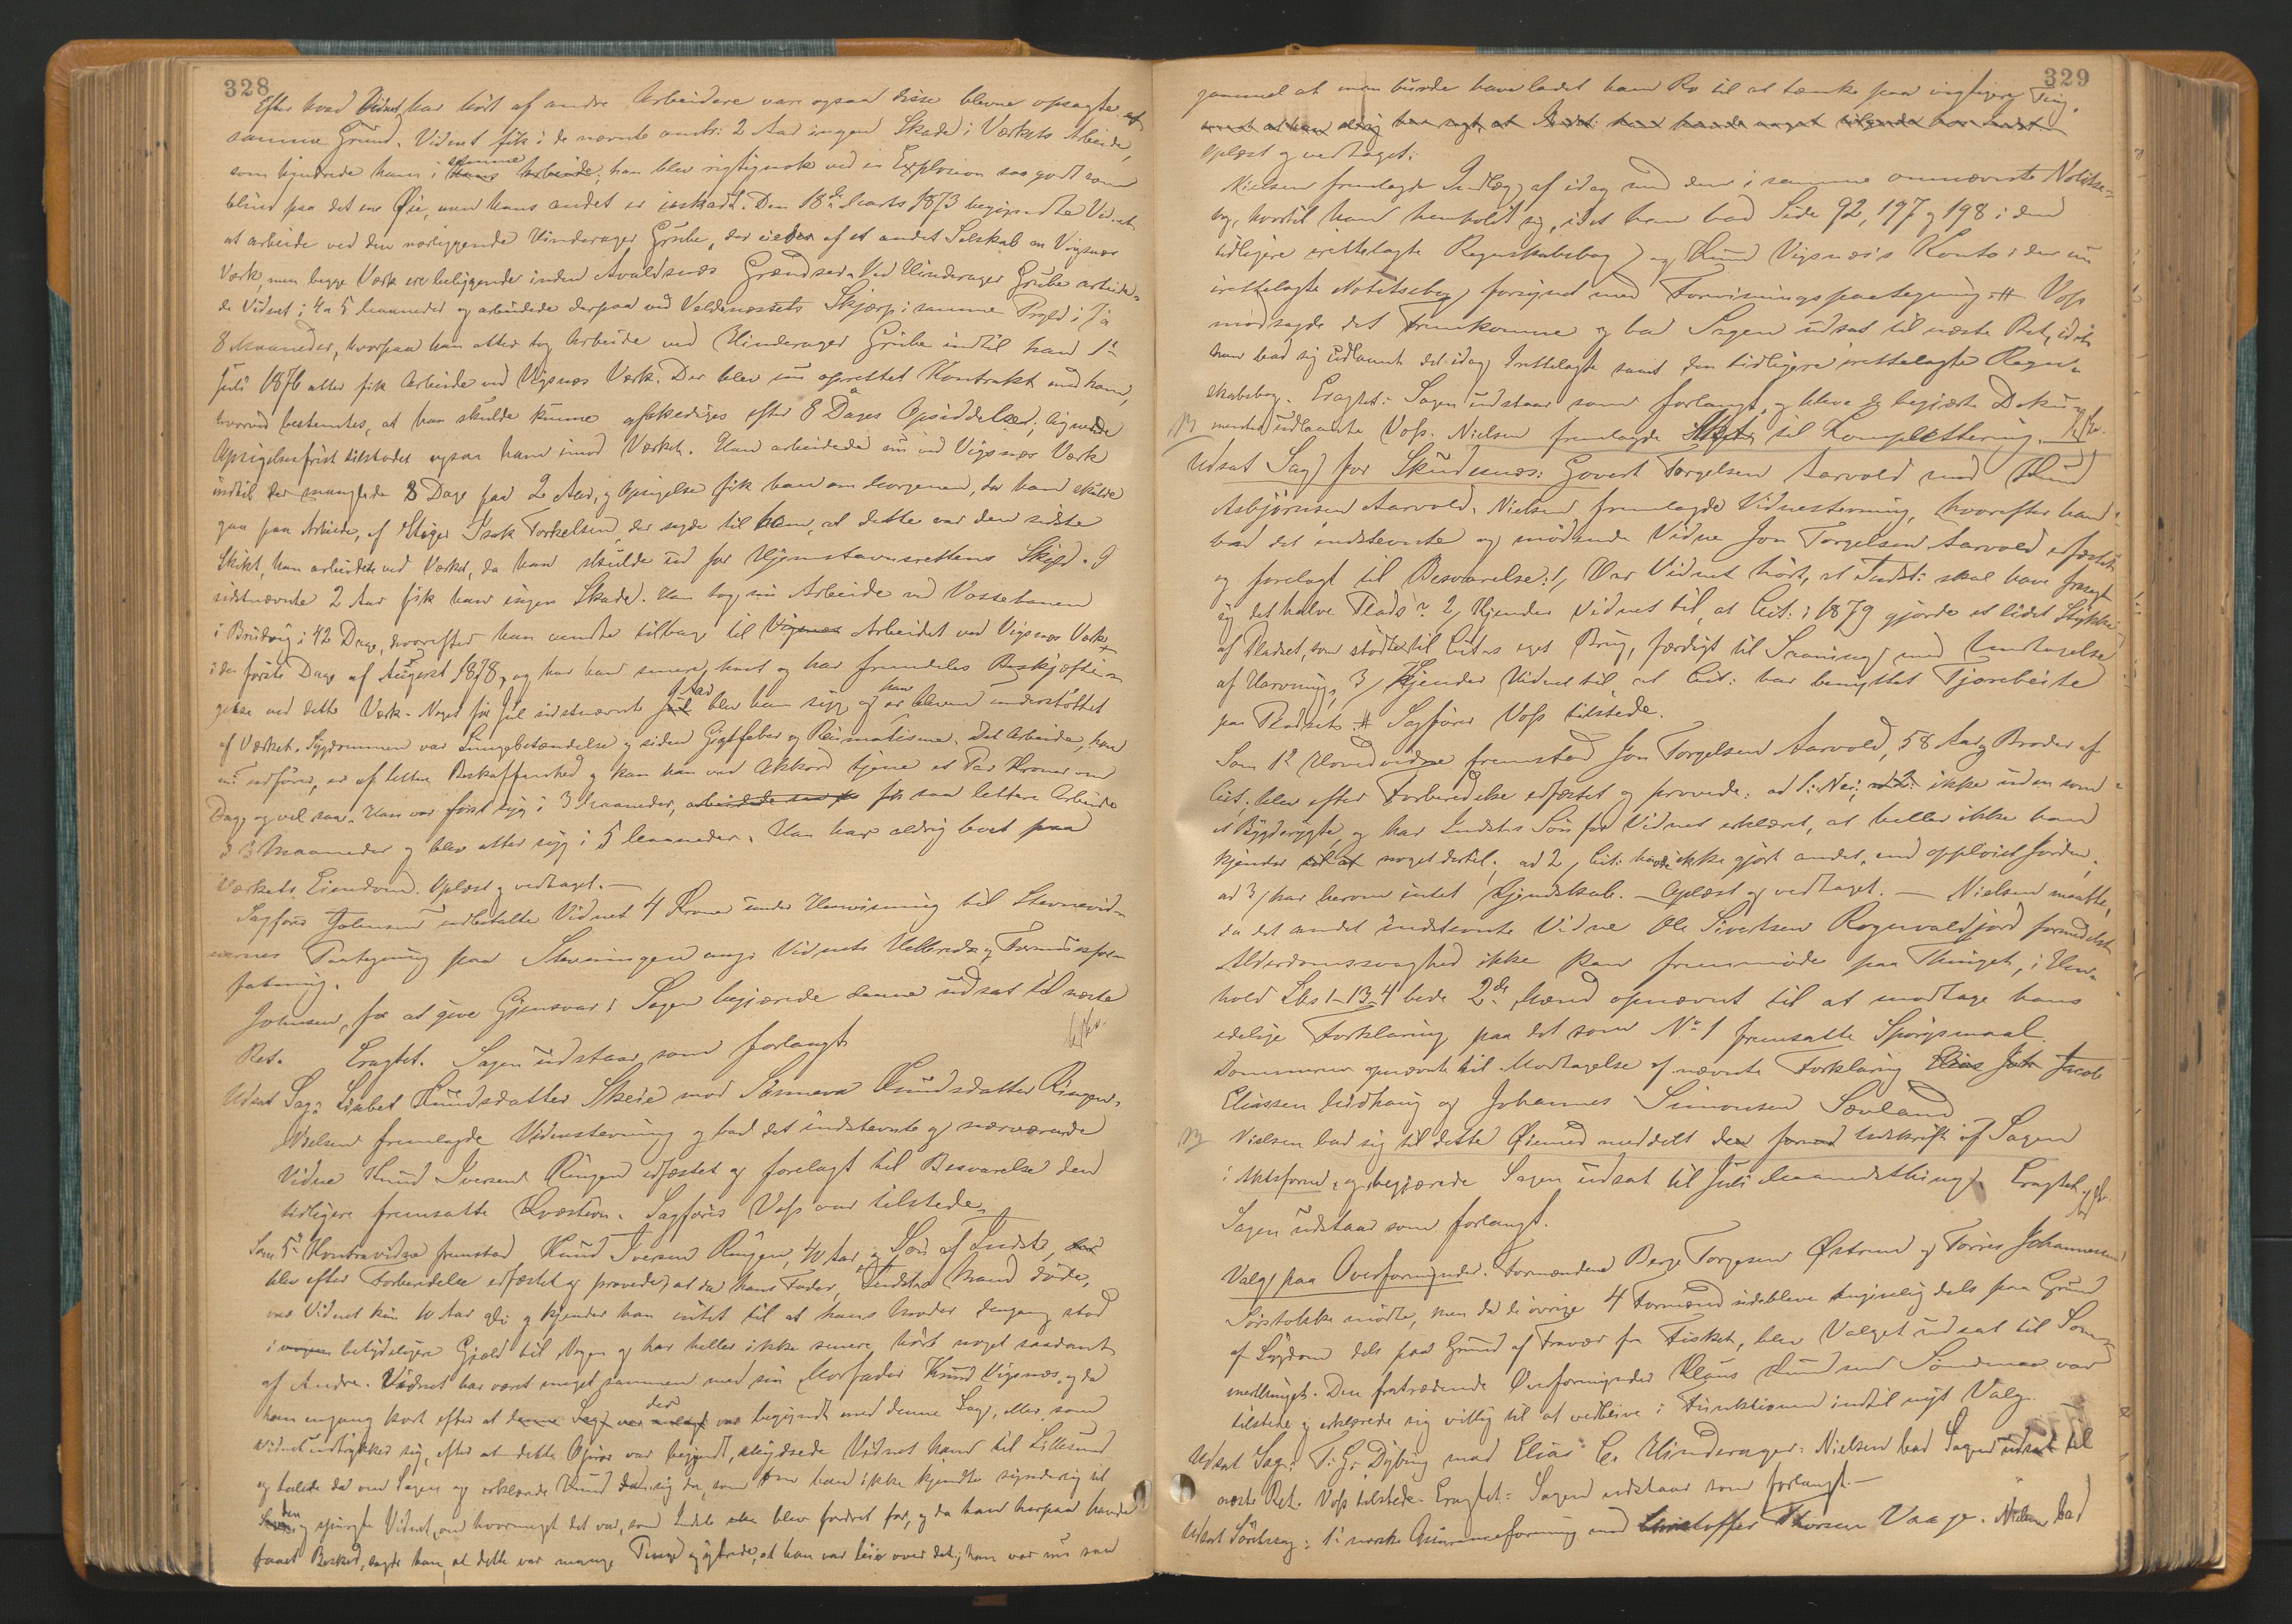 328
Efter hvad Vidnet har hört af andre Arbeidere vare ogsaa disse blevne opsagte af
samme Grund. Vidnet fik i de nævnte omtr: 2 Aar ingen Skade i Værkets Arbeide,
som hindrede ham i samme; han blev rigtignok ved en Explosion saa godt som
blind paa det ene Öie, men hans andet er uskadt. Den 18de Marts 1873 begyndte Vidnet
at arbeide ved den nærliggende Hinderager Grube, der eies af et andet Selskab en Vigsnæs
Værk, men begge Værk ere beliggende inden Avaldsnæs Grændser. Ved Hinderager Grube arbeide-
de Vidnet i 4 a 5 Maaneder og arbeidede derpaa ved Veldenæsets Skjærp i samme Prgld i 7 a
8 Maaneder, hvorpaa han atter tog Arbeide ved Hinderager Grube indtil han 1ste
Juli 1876 atter fik Arbeide ved Vigsnæs Værk. Der blev nu oprettet Kontrakt med ham,
hvorved bestemtes, at han skulde kunne afskediges efter 8 Dages Opsigelse; lignende
Opsigelsesfrist tilstodes ogsaa ham imod Værket. Han arbeidede nu ved Vigsnæs Værk
indtil der manglede 8 Dage paa 2 Aar, og Opsigelse fik han om Morgenen, da han skulde
gaa paa Arbeide, af Stiger Isak Torkelsen, der sagde til ham, at dette var den sidste
Skikt, han arbeidede ved Værket, da han skulde ud for Hjemstavnsrettens Skyld. I
sidstnævnte 2 Aar fik han ingen Skade. Han tog nu Arbeide ved Vossebanen
i 42 Dage, hvorefter han vendte tilbage til Arbeidet ved Vigsnæs Værk
i de förste Dage af August 1878, og har han senere havt og har fremdeles Beskjæfti-
gelse ved dette Værk. Noget för Jul sidstnævnte Aar blev han syg og er han bleven understöttet
af Værket. Sygdommen var Lungebetændelse og siden Gigtfeber og Reumatisme. Det Arbeide, han
nu udförer, er af lettere Beskaffenhed og kan han ved Akkord tjene et Par Kroner om
Dagen og vel saa. Han var först syg i 3 Maaneder, fik saa lettere Arbeide
i 3 Maaneder og blev atter syg i 5 Maaneder. Han har aldrig boet paa
Værkets Eiendom. Oplæst og vedtaget.
Sagförer Johnsen udbetalte Vidnet 4 Kroner under Henvisning til Stevnevid-
nernes Paategning paa Stevningen ang. Vidnets Helbreds og Formuesfor-
fatning.
Johnsen, for at give Gjensvar i Sagen begjærede denne udsat til næste
Ret. Eragtet. Sagen udstaar som forlangt
Udsat Sag: Lisbet Knudsdatter Skeie mod Sönneva Knudsdatter Ringen.
Nielsen fremlagde Vidnestevning og bad det indstevnte og nærværende
Vidne Knud Iversen Ringen edfæstet og forelagt til Besvarelse den
tidligere fremsatte Qvæstion. Sagförer Voss var tilstede.
Som 5te Kontravidne fremstod Knud Iversen Ringen, 40 Aar, og Sön af Indst:,
blev efter Forberedelse edfæstet og provede, at da hans Fader, Indst:s Mand döde,
var Vidnet kun 10 Aar gl. og kjender han intet til at hans Moder dengang stod
i betydeligere Gjæld til Nogen og har heller ikke senere hört noget saadant
af Andre. Vidnet har været meget sammen med sin Morfader Knud Vigsnæs, og da
han engang kort efter at der var begyndt med denne Sag, eller, som
Vidnet udtrykker sig, efter at dette var begyndt, skydsede Vidnet ham til Lillesund
og talede da om Sagen og erklærede Knud sig da, som om han ikke kjendte synderlig til
den og spurgte Vidnet, om hvormeget det var, som Indst: blev fordret for, og da han herpaa havde
faaet Besked, sagde han, at dette var mange Penge og ytrede, at han var leie over det, han var nu saa
329
gammel at man burde have ladet ham Ro til at tænke paa vigtigere Ting.
Oplæst og vedtaget.
Nielsen fremlagde Indlæg af idag med den i samme omnævnte Notitse-
bog, hvortil han henholdt sig, idet han bad Side 92, 197 og 198 i den
tidligere irettelagte Regnskabsbog og Knud Vigsnæs's Konto i den nu
irettelagte Notitsebog forsynet med Forevisningspaategning. # Voss
modsagde det Fremkomne og bad Sagen udsat til næste Ret, idet
han bad sig udlaant det idag Irettelagte samt den tidligere irettelagte Regn-
skabsbog. Eragtet: Sagen udstaar som forlangt og bleve de begjærte Doku-
menter udlaante Voss. Nielsen fremlagde til Komplettering.
Udsat Sag for Skudesnæs: Govert Torgelsen Aarvold mod Knud
Asbjörnsen Aarvold. Nielsen fremlagde Vidnestevning, hvorefter han
bad det indstevnte og mödende Vidne Jon Torgelsen Aarvold edfæstet
og forelagt til Besvarelse: 1, Har Vidnet hört, at Indst: skal have fragaaet
sig det halve Plads? 2, Kjender Vidnet til, at Cit: i 1879 gjorde et lidet Stykke
af Pladset, som stödte til Cit:s eget Brug, færdigt til Saaning med Undtagelse
af Harvning, 3, Kjender Vidnet til, at Cit: har benyttet Fjorebeite
paa Pladset. # Sagförer Voss tilstede.
Som 1ste Hovedvidne fremstod Jon Torgelsen Aarvold, 58 Aar, og Broder af
Cit:, blev efter Forberedelse edfæstet og provede: ad 1: Nei, ikke uden som
et Bygderygte, og har Indst:s Sön for Vidnet erklæret, at heller ikke han
kjender noget dertil; ad 2, Cit: havde ikke gjort andet, end opploiet Jorden,
ad 3, har herom intet Kjendskab. Oplæst og vedtaget. — Nielsen maatte,
da det andet indstevnte Vidne Ole Sivertsen Rognvaldsjord formedelst
Alderdomssvaghed ikke kan fremmöde paa Thinget, i Hen-
hold Lbs 1-13-4 bede 2de Mænd opnævnt til at modtage hans
edelige Forklaring paa det som No 1 fremsatte Spörgsmaal.
Dommeren opnævnte til Modtagelse af nævnte Forklaring Jacob
Eliassen Lidhaug og Johannes Simonsen Sævland
Nielsen bad sig til dette Öiemed meddelt Udskrift af Sagen
i Aktsform, og begjærede Sagen udsat til Juli Maanedsthing. Eragtet.
Sagen udstaar som forlangt.
Valg paa Overformynder. Formændene Berge Torgersen Östrem og Torris Johannessen
Sörstokke mödte, men da de övrige 4 Formænd udebleve angivelig dels paa Grund
af Sygdom dels paa Grund af Fravær fra Fisket, blev Valget udsat til Som-
merthinget. Den fratrædende Overformynder Klaus Knudsen Söndenaa var
tilstede og erklærede sig villig til at vedblive i Funktionen indtil nyt Valg.
Udsat Sag: T. G. Dybing mod Elias C. Hinderager. Nielsen bad Sagen udsat til
næste Ret. Voss tilstede. Eragtet: Sagen udstaar som forlangt.
Udsat Söretssag: 1: norske Assuranceforening mod Christoffer Thorsen Vaage. Nielsen bad